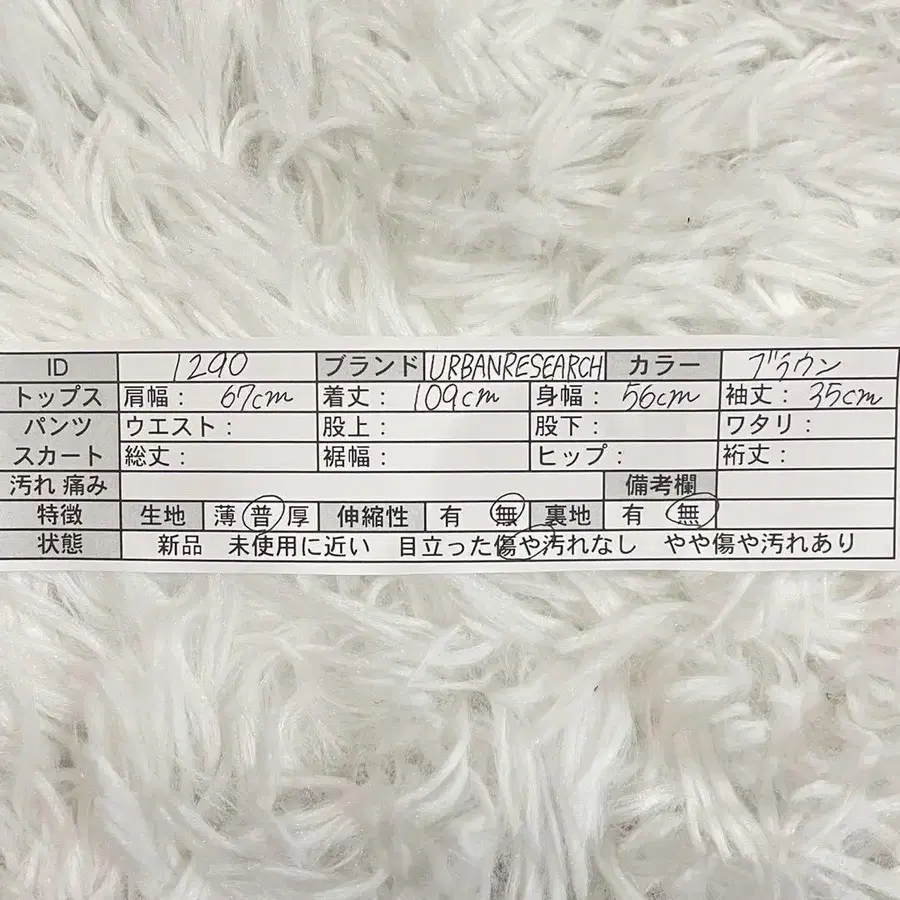 ID 1290 ブランド URBANRESEARCH カラー ブラウン
トップス 肩幅： 67cm 着丈： 109cm 身幅： 56cm 袖丈： 35cm
パンツ ウエスト： 股上： 股下： ワタリ：
スカート 総丈： 裾幅： ヒップ： 裄丈：
汚れ 痛み 備考欄
特徴 生地 薄 普 厚 伸縮性 有 無 裏地 有 無
状態 新品 未使用に近い 目立った傷や汚れなし やや傷や汚れあり